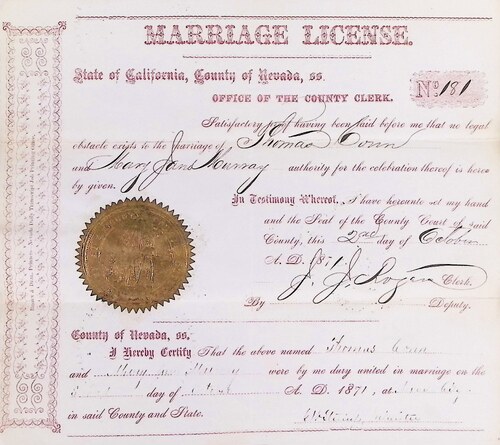 MARRIAGE LICENSE.
State of California, County of Nevada, ss.
OFFICE OF THE COUNTY CLERK.
No. 181
Satisfactory proof having been laid before me that no legal
obstacle exists to the marriage of Thomas Conn
and Mary Jane Murray authority for the celebration thereof is here-
by given.
In Testimony Whereof, I have hereunto set my hand
and the Seal of the County Court of said
County, this 2nd day of October
A. D. 1871
J. J. Rogers Clerk.
By Deputy.
County of Nevada, ss.
I Hereby Certify That the above named Thomas
and were by me duly united in marriage on the
day of A. D. 1871, at
in said County and State.